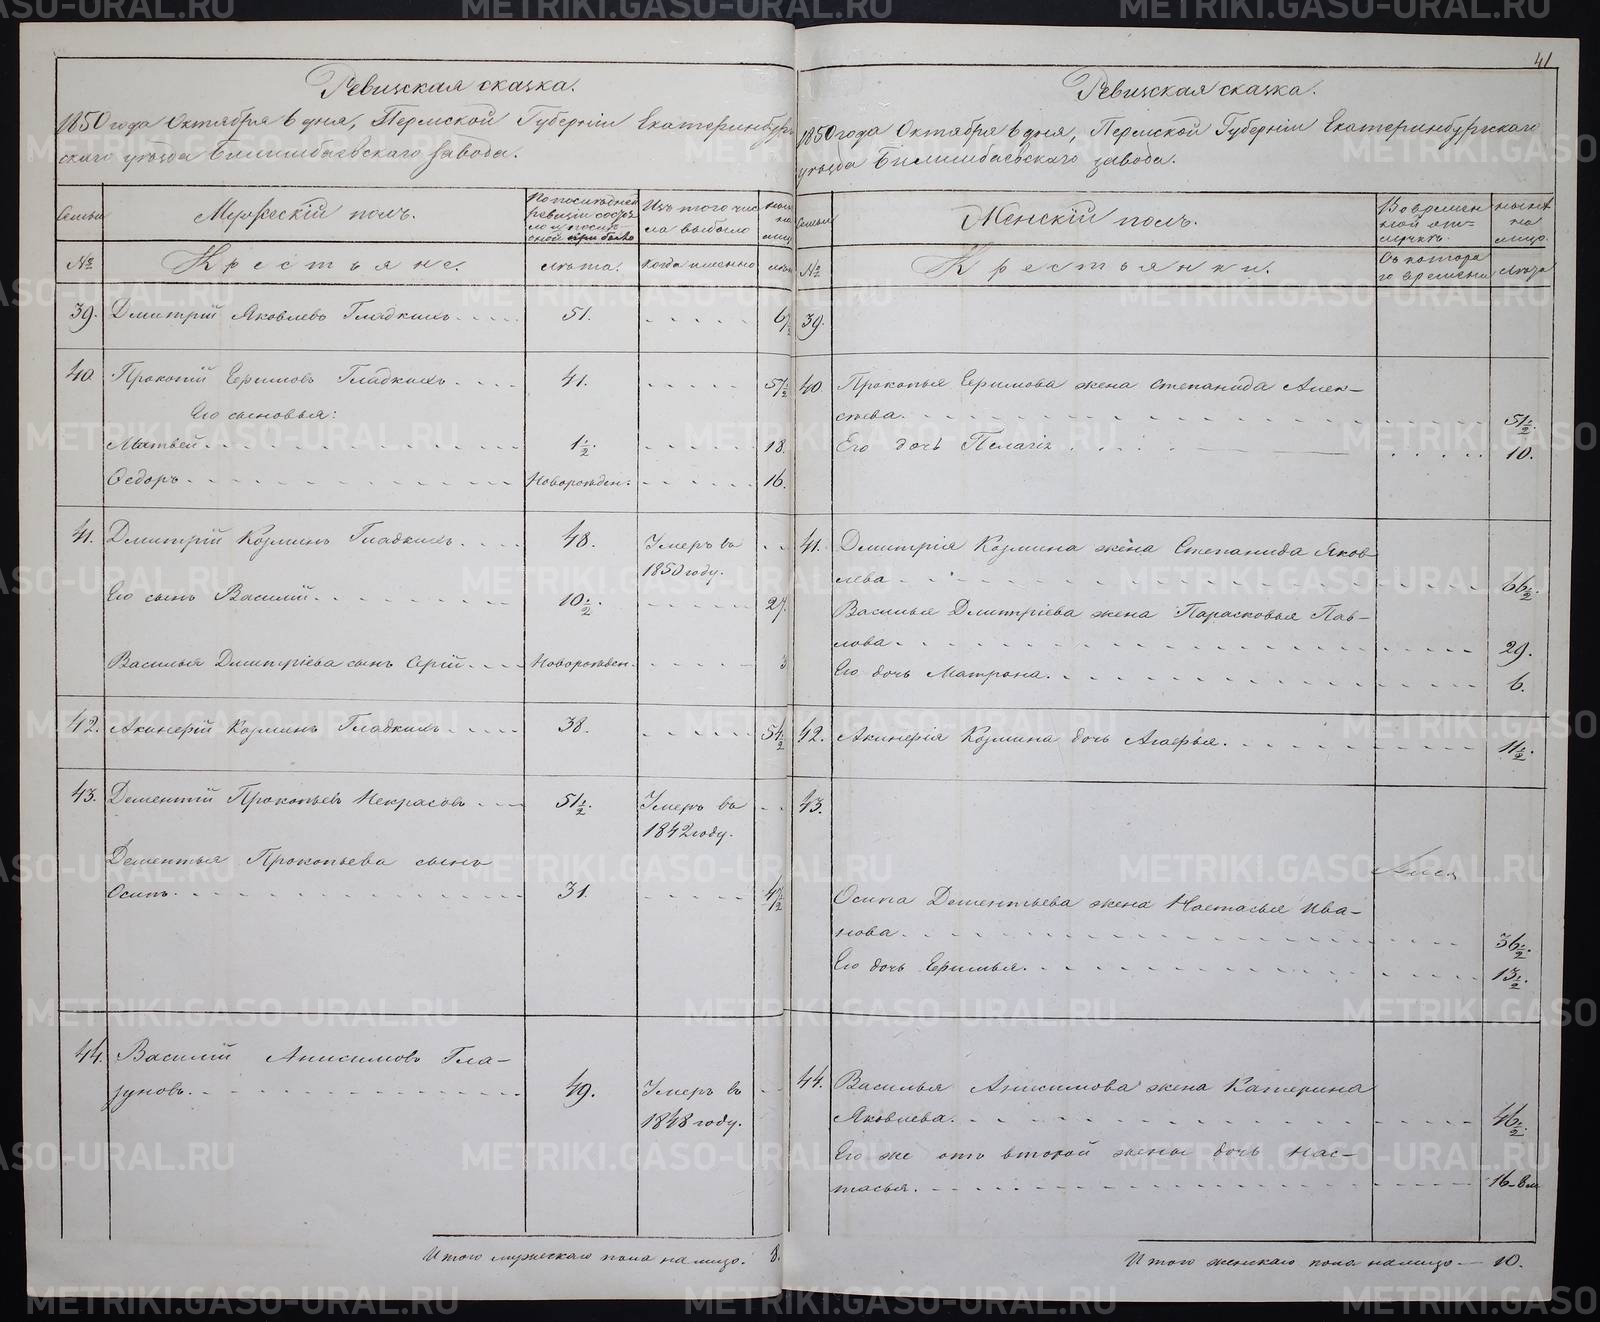 Ревизская сказка.
1850 года Октября 6 дня, Пермской Губерніи Екатеринбург-
скаго уѣзда Билимбаевскаго завода.
Семьи
Мужескій полъ.
По послѣдней
ревизіи состоя-
ло и послѣ
оной прибыло
Изъ того чис
ла выбыло
Нынѣ
на
лицо
№
Крестьяне.
Лѣта.
Когда именно
лѣта
39. Дмитрій Яковлевъ Гладкихъ 51. 67½
40. Прокопій Ефимовъ Гладкихъ 41. 57½
Его сыновья:
Матвей 1½. 18.
Ѳедоръ Новорожден: 16.
41. Дмитрій Козминъ Гладкихъ 48. Умеръ въ
1850 году.
Его сынъ Василій 10½. 27.
Василья Дмитріева сынъ Сергій Новорожден. 3
42. Акинфій Козминъ Гладкихъ 38. 54½
43. Дементій Прокопьевъ Некрасовъ 51½. Умеръ въ
1842 году.
Дементья Прокопьева сынъ
Осипъ 31. 47½
44. Василій Анисимовъ Гла-
зуновъ 49. Умеръ въ
1848 году.
Итого мужескаго пола на лицо. 8.
41
Ревизская сказка.
1850 года Октября 6 дня, Пермской Губерніи Екатеринбургскаго
уѣзда Билимбаевскаго завода.
Семьи
Женскій полъ.
Во времен
ной от-
лучкѣ.
Нынѣ
на
лицо.
№
Крестьянки.
Съ котора
го времени
Лѣта
39.
40 Прокопья Ефимова жена Степанида Алек-
сѣева 51½.
Его дочь Пелагія 10.
41. Дмитрія Козмина жена Степанида Яков
лева 66½.
Василья Дмитріева жена Парасковья Пав-
лова 29.
Его дочь Матрона 6.
42. Акинфія Козмина дочь Агафья 11½.
43.
Осипа Дементьева жена Настасья Ива-
нова 36½.
Его дочь Ефимья 13½.
44. Василья Анисимова жена Катерина
Яковлева 46½.
Его же отъ второй жены дочь Нас-
тасья 16
Итого женскаго пола на лицо 10.
METRIKI.GASO-URAL.RU